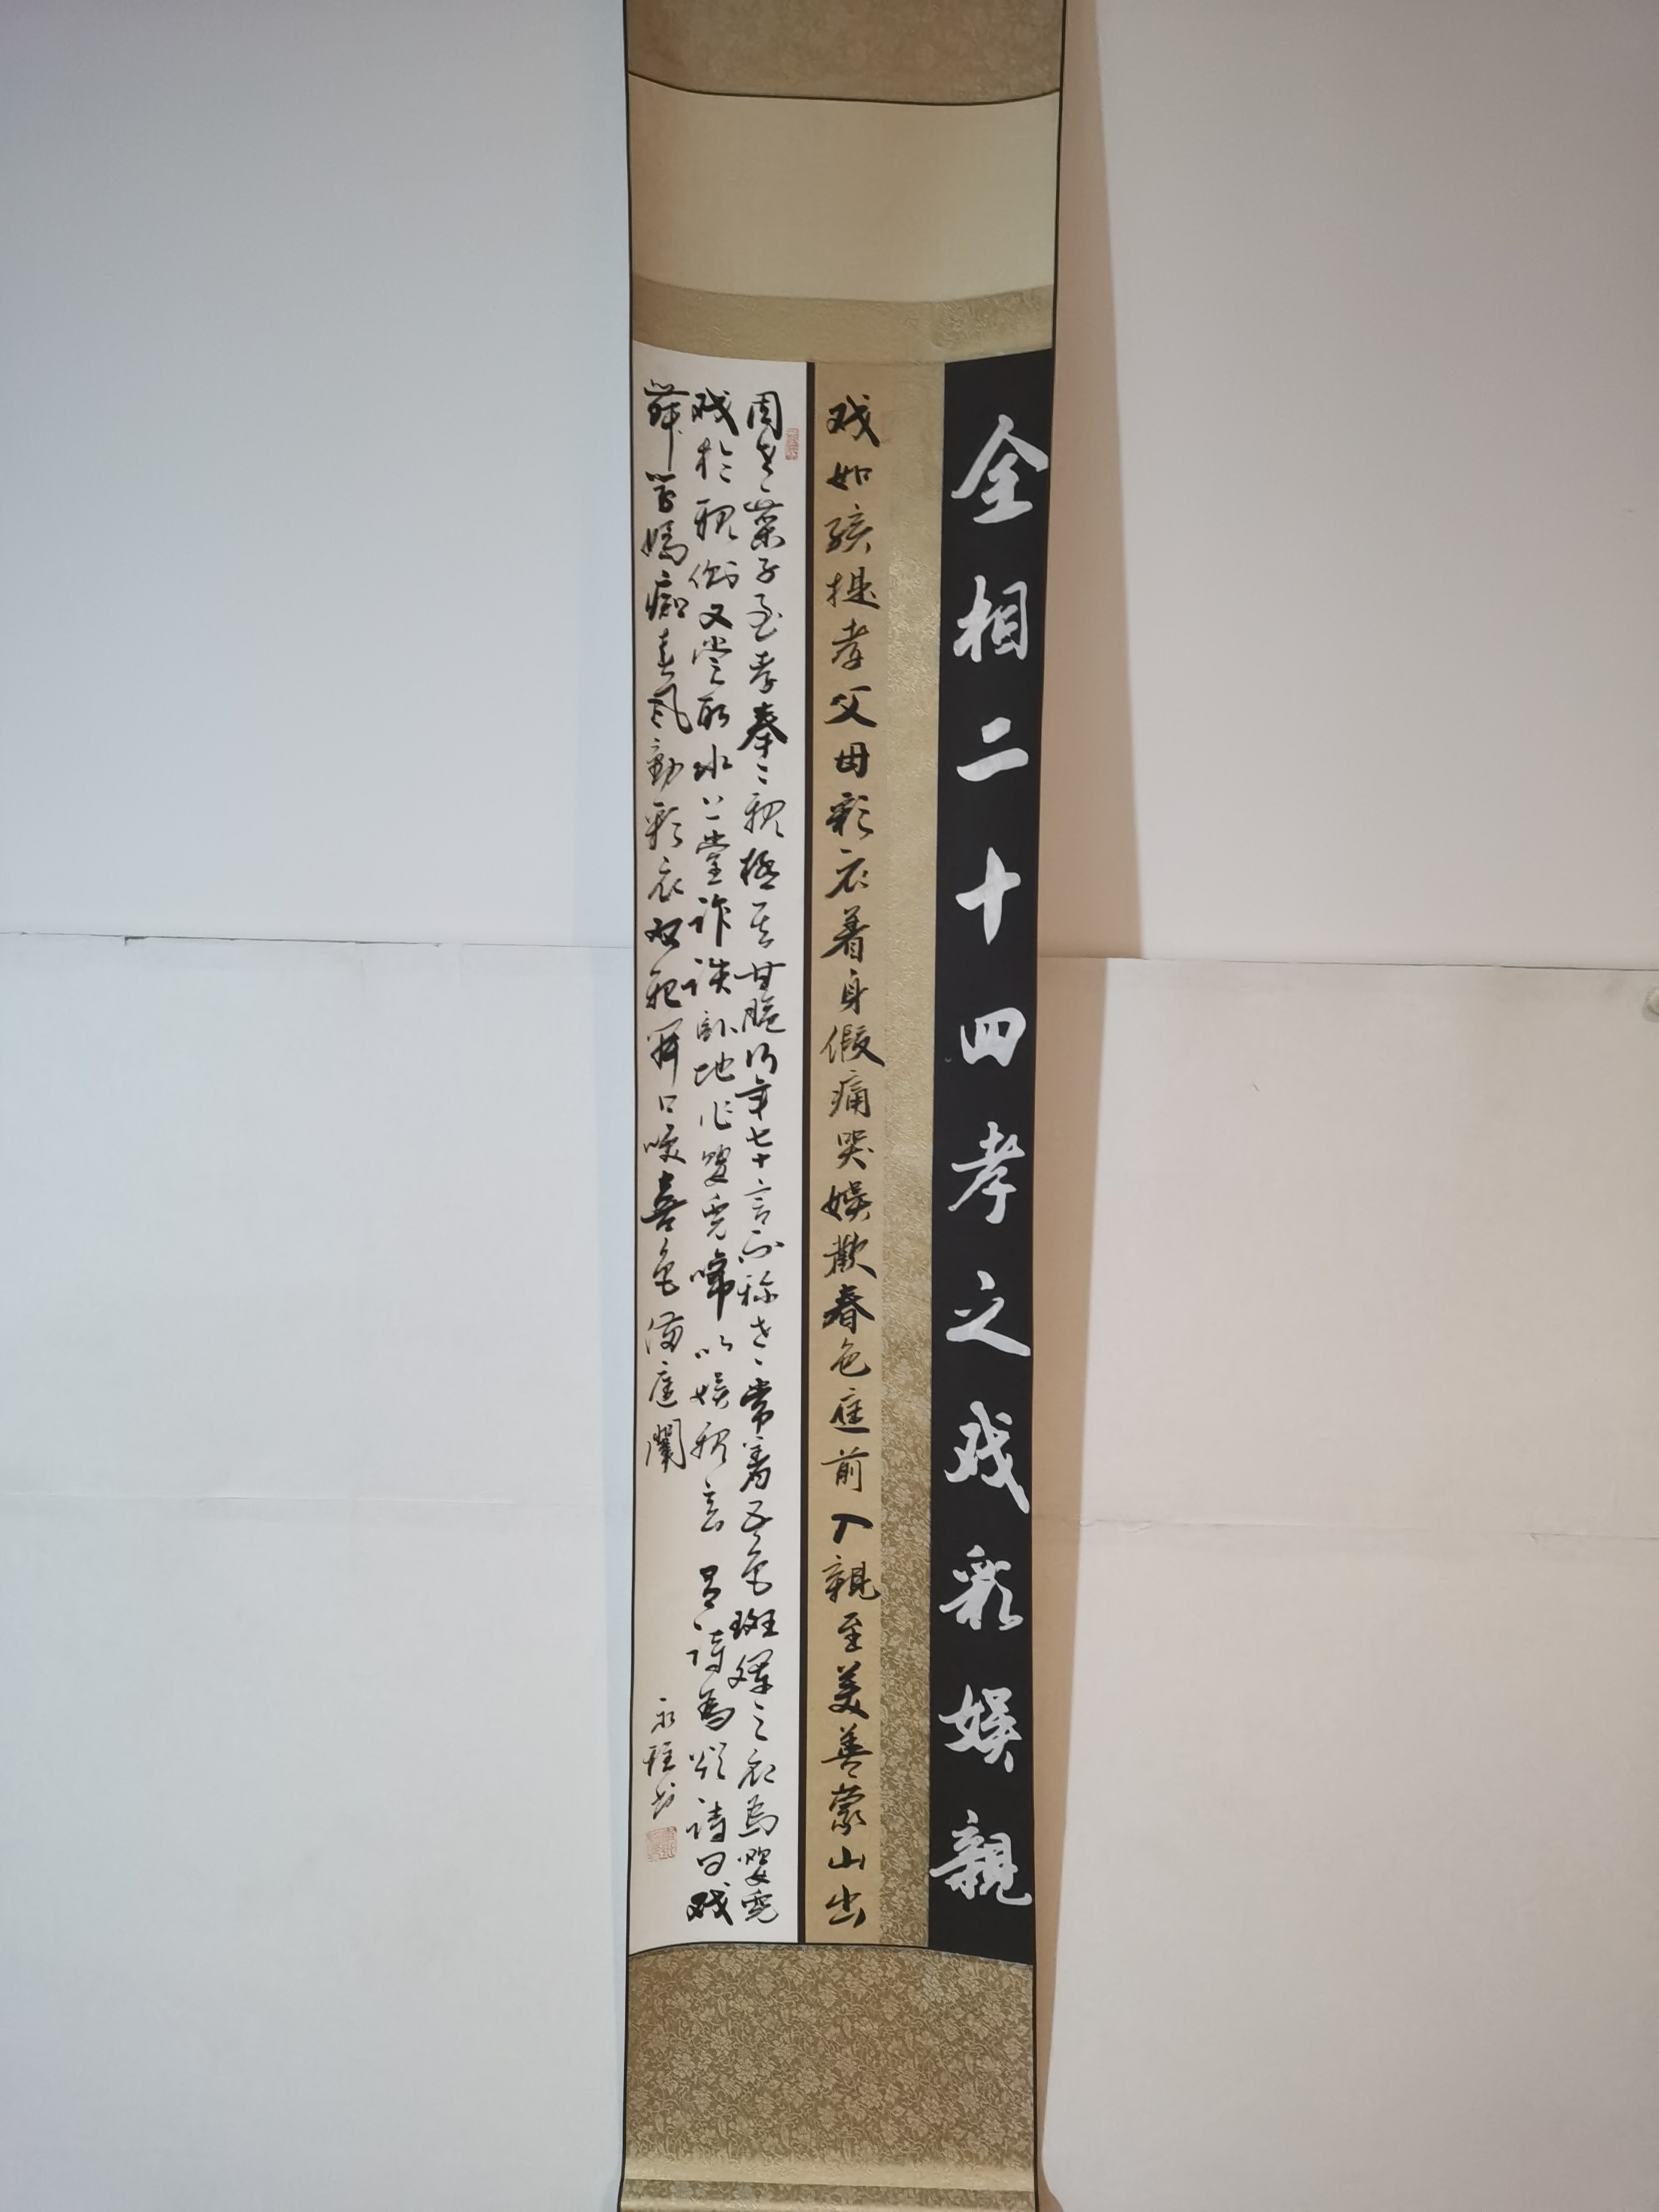 全相二十四孝之戏彩娱親
戏如孩提孝父母彩衣着身假痛哭娱歡春色庭前入親至美善蒙山出
周老〻莱子至孝奉二親極其甘脆行年七十言不称老〻常着五色斑斓之衣為嬰兒
戏於親側又尝取水上堂诈跌卧地作嬰兒啼以娱親意 有诗為颂诗曰戏
舞学嬌痴春風動彩衣双親开口笑喜色满庭闈
永程书